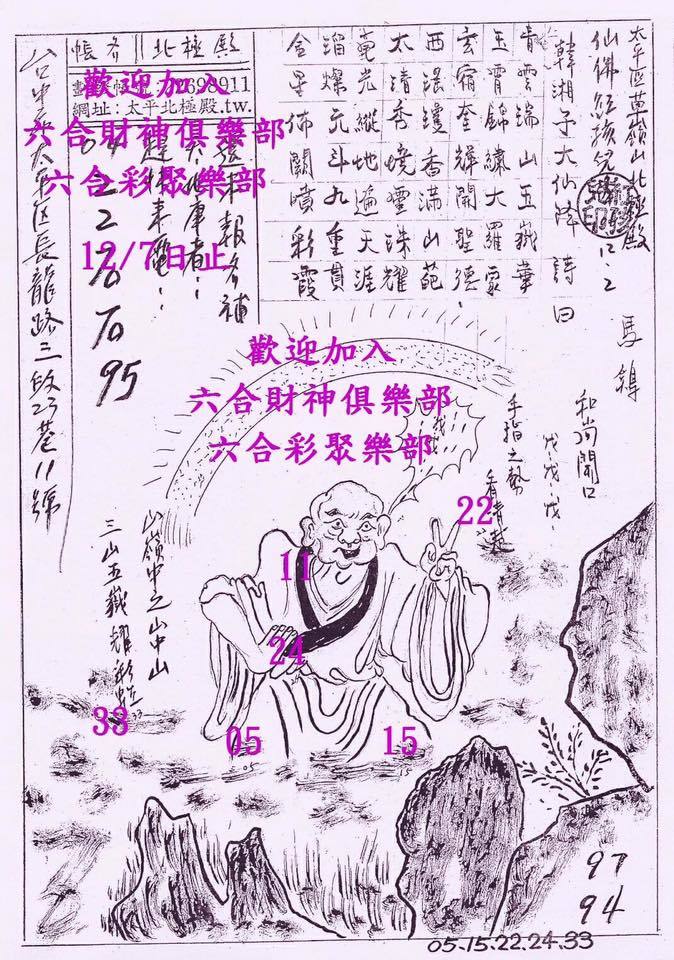 太平区黄嶺山北極殿
仙佛 孩兒
12.2
馬鎽
韓湘子大仙降 詩曰
青雲瑞山玉嶽華
玉霄錦繡大羅家
玄宿奎輝開聖德
西瑤 香滿山
太清秀境靈珠耀
毫光縱地遍天涯
璀燦元斗九重貫
金 佈闕噴彩霞
殿極北
帳
網址:太平北極殿.tw.
歡迎加入
六合財神俱樂部
六合彩聚樂部
12/7日止
2
2
70
70
95
台中市太平区長龍路三段23巷11號
歡迎加入
六合財神俱樂部
六合彩聚樂部
和尚開口
戊戊戊
手指之勢
看清楚
22
11
24
山嶺中之山中山
三山五嶽耀彩虹
33
05
15
05
15
97
94
05.15.22.24.33